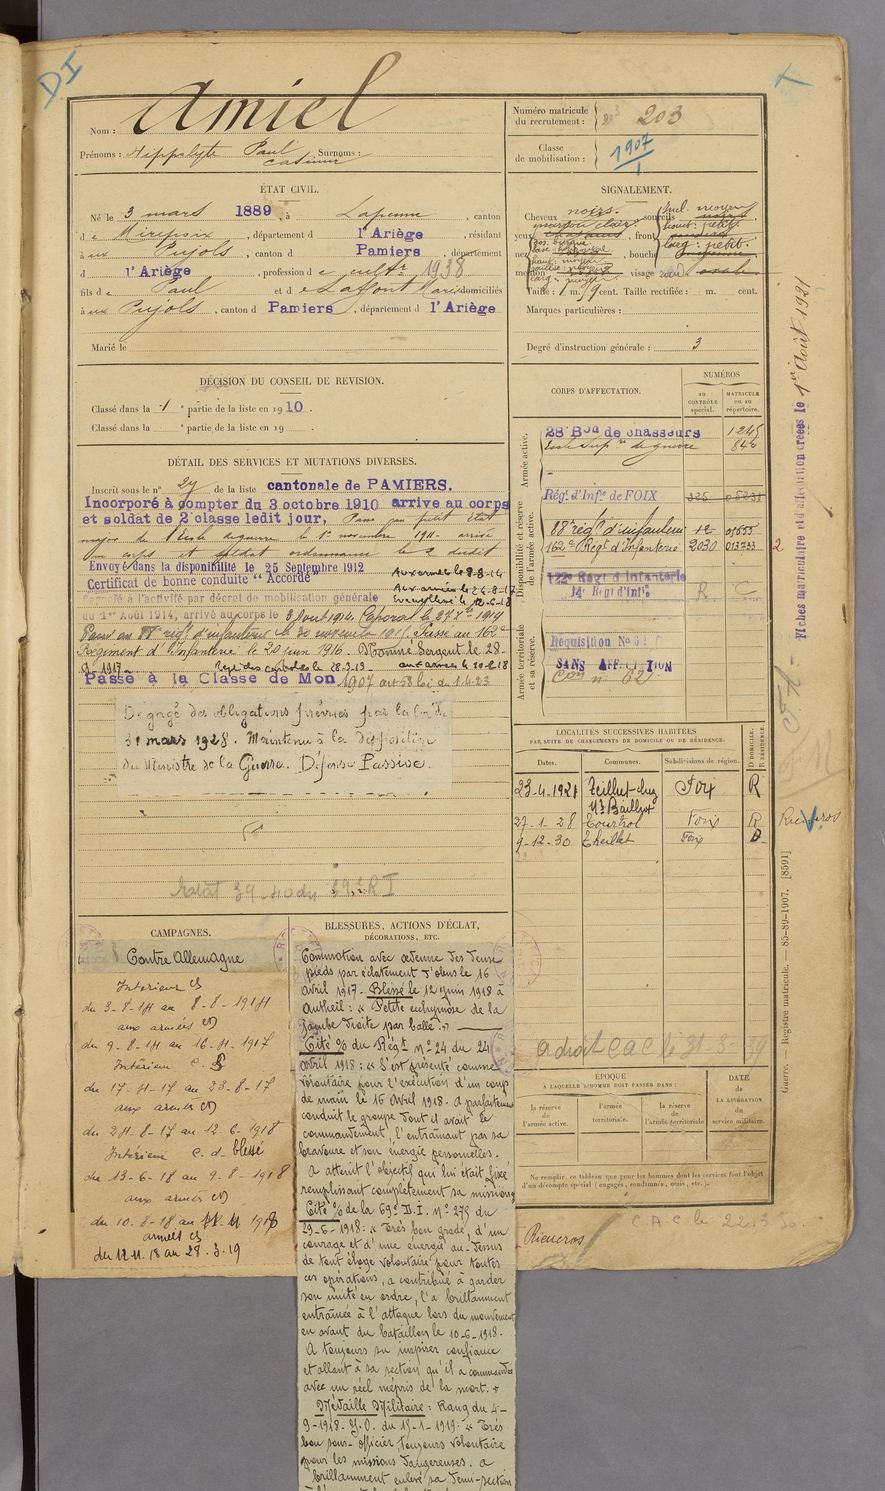 DI
Nom : Amiel
Prénoms : Hippolyte Paul Surnoms :
Casimir
Numéro matricule
du recrutement : 203
Classe
de mobilisation : 1907
ÉTAT CIVIL.
Né le 3 mars 1889, à Lapenne, canton
de Mirepoix, département d l'Ariège, résidant
à aux Pujols, canton d Pamiers, département
d l'Ariège, profession d e cultr 1938
fils d e Paul et d e Laffont Marie domiciliés
à aux Pujols, canton d Pamiers, département d l'Ariège
Marié le
SIGNALEMENT.
Cheveux noirs. sourcils
yeux front
nez bouche
menton visage
Taille : 1 m. cent. Taille rectifiée : m. cent.
Marques particulières :
Degré d'instruction générale : 3
DÉCISION DU CONSEIL DE REVISION.
Classé dans la 1 e partie de la liste en 1910.
Classé dans la e partie de la liste en 19 .
DÉTAIL DES SERVICES ET MUTATIONS DIVERSES.
Inscrit sous le n° 27 de la liste cantonale de PAMIERS.
Incorporé à compter du 3 octobre 1910 arrive au corps
et soldat de 2e classe ledit jour, Passé au petit état
major de l'Ecole de guerre le 1er novembre 1911 arrivé
au corps et soldat ordonnance le 2 dudit
Envoyé dans la disponibilité le 25 Septembre 1912
Certificat de bonne conduite "Accordé
Aux armées le 8-8-14
Aux armées le 24-8-17
Evacué blessé le 12-6-18
Rappelé à l'activité par décret de mobilisation générale
du 1er Août 1914, arrivé au corps le 3 Août 1914. Caporal le 27 Xbre 1914
Passé au 88e régt d'infanterie le 30 1915. Passe au 162e
Régiment d'Infanterie le 20 juin 1916. Nommé Sergent le 28-
9-1917. le 28.3.19 aux armées le 10.8.18
Passé à la Classe de Mon 1907 art 58 loi du 1.4.23
Dégagé des obligations prévues par la loi du
31 mars 1928. Maintenu à la disposition
du Ministre de la Guerre. Défense Passive.
CORPS D'AFFECTATION.
NUMÉROS
AU CONTRÔLE spécial.
MATRICULE ou au répertoire.
Armée active.
28 Bon de chasseurs 1245
Ecole Supre de guerre 846
Disponibilité et réserve
de l'armée active.
Régt d'Infie de FOIX 325
88e régt d'infanterie 12 01555
162e Régt d'Infanterie 2030 013733
2
122e Régt d'Infanterie
14e Régt d'Infie R C
Armée territoriale
et sa réserve.
Réquisition No 31
SANS AFFECTATION
LOCALITÉS SUCCESSIVES HABITÉES
PAR SUITE DE CHANGEMENTS DE DOMICILE OU DE RÉSIDENCE.
Dates. Communes. Subdivisions de région. D domicile. R résidence.
23-4-1921 Teilhet chez Foix R
Mr Baillot
27-1-28 Tourtrol Foix R
9-12-30 Theillet Foix D
Rieucros
Fiches matriculaire et d'affectation créées le 1er Août 1921
Guerre. — Registre matricule. — 85-89-1907. [8591]
CAMPAGNES.
Contre Allemagne
Intérieur CS
du 3-8-14 au 8-8-1914
aux armées CD
du 9-8-14 au 16-4-1917
Intérieur C. S
du 17-4-17 au 23-8-17
aux armées CD
du 24-8-17 au 12.6.1918
Intérieur C. d. blessé
du 13-6-18 au 9-8-1918
aux armées CD
du 10-8-18 au 11 11 1918
armées CS
du 12.11.18 au 28.3.19
BLESSURES, ACTIONS D'ÉCLAT,
DÉCORATIONS, ETC.
Commotion avec œdème des deux
pieds par éclatement d'obus le 16
avril 1917. Blessé le 12 juin 1918 à
Antheuil : « Petite ecchymose de la
jambe droite par balle »
Cité % du Régt n° 24 du 24
avril 1918 : « S'est présenté comme
volontaire pour l'exécution d'un coup
de main le 16 Avril 1918. A parfaitement
conduit le groupe dont il avait le
commandement, l'entraînant par sa
bravoure et son énergie personnelles.
A atteint l'objectif qui lui était fixé
remplissant complètement sa mission »
Cité % de la 69e D.I. N° 275 du
29-6-1918 : « Très bon gradé, d'un
courage et d'une énergie au-dessus
de tout éloge volontaire pour toutes
ces opérations, a contribué à garder
son unité en ordre, l'a brillamment
entraînée à l'attaque lors du mouvement
en avant du bataillon le 10-6-1918.
A toujours su inspirer confiance
et allant à sa section qu'il a commandée
avec un réel mépris de la mort. »
Médaille Militaire : Rang du 4-
9-1918. J.O. du 15-1-1919 : « Très
bon sous-officier toujours volontaire
pour les missions dangereuses. A
brillamment enlevé sa demi-section
a droit CAC le 31-3-39
ÉPOQUE
À LAQUELLE L'HOMME DOIT PASSER DANS :
la réserve de l'armée active.
l'armée territoriale.
la réserve de l'armée territoriale
DATE
de
LA LIBÉRATION
du
service militaire.
Ne remplir ce tableau que pour les hommes dont les services font l'objet
d'un décompte spécial (engagés, condamnés, omis, etc.).
Rieucros
C.A.C. le 22.3